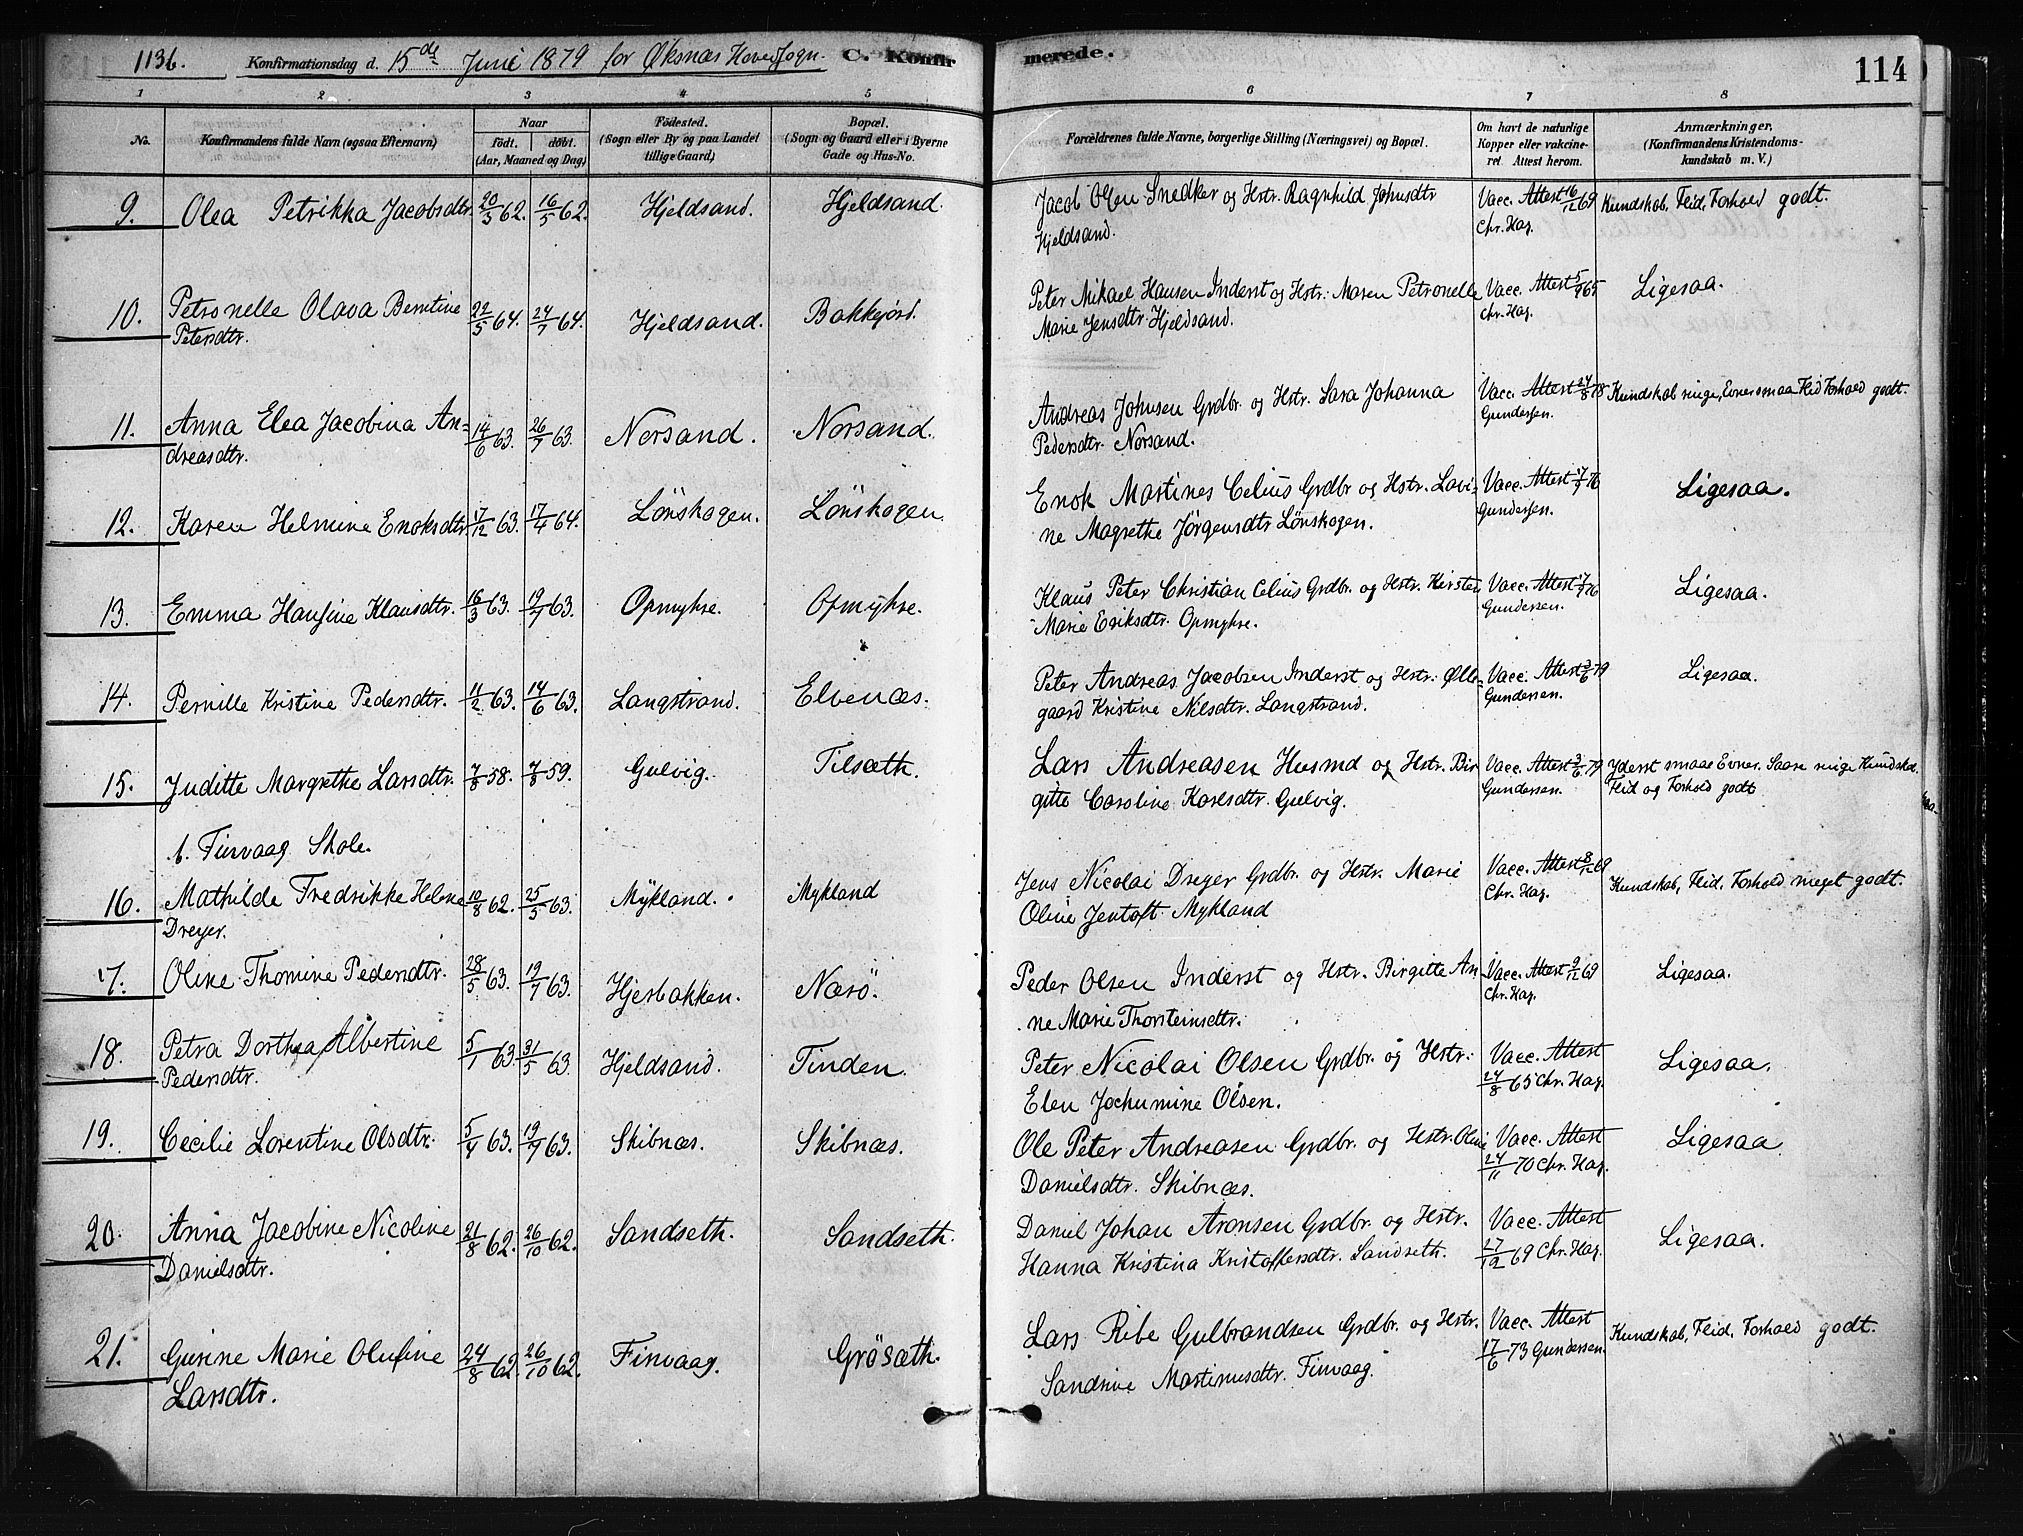 113b. Konfirmationsdag d. 15de Juni 1879 for Øksnæs Hovedsogn. C. Konfirmerede. 114
1 2 3 4 5 6 7 8
No. Konfirmandens fulde Navn (ogsaa Efternavn) Naar født. døbt. (Aar, Maaned og Dag) Fødested. (Sogn eller By og paa Landet tillige Gaard) Bopæl. (Sogn og Gaard eller i Byerne Gade og Hus-No. Forældrenes fulde Navne, borgerlige Stilling (Næringsvei) og Bopæl. Om havt de naturlige Kopper eller vakcineret Attest herom. Anmærkninger. (Konfirmandens Kristendomskundskab m. V.)
9. Olea Petrikka Jacobsdtr. 20/3 62. 16/5 62. Hjeldsand. Hjeldsand. Jacob Olsen Snedker og Hstr. Ragnhild Johnsdtr Vacc. Attest 16/12 69 Kundskab, Flid, Forhold godt.
Hjeldsand. Chr. Hag.
10. Petronelle Olava Berntine 22/5 64. 24/7 64. Hjeldsand. Bakkejord. Peter Mikael Hansen Inderst og Hstr. Maren Petronelle Vacc. Attest 5/9 65 Ligesaa.
Petersdtr. Marie Jensdtr. Hjeldsand. Chr. Hag.
11. Anna Elea Jacobina An- 14/6 63. 26/7 63. Norsand. Norsand. Andreas Johnsen Grdbr. og Hstr. Sara Johanna Vacc. Attest 24/8 78 Kundskab ringe, Evner smaa Flid Forhold godt.
dreasdtr. Pedersdtr. Norsand. Gundersen.
12. Karen Helmine Enoksdtr. 17/12 63. 17/4 64. Lönskogen. Lönskogen. Enok Martines Celius Grdbr og Hstr. Lavi- Vacc. Attest 7/7 76 Ligesaa.
ne Magrethe Jörgensdtr Lönskogen. Gundersen.
13. Emma Hansine Klausdtr. 16/3 63. 19/7 63. Opmyhre. Opmyhre. Klaus Peter Christian Celius Grdbr. og Hstr. Kirsten Vacc. Attest 7/7 76 Ligesaa.
Marie Eriksdtr. Opmyhre. Gundersen.
14. Pernille Kristine Pedersdtr. 11/2 63. 14/6 63. Langstrand. Elvenæs. Peter Andreas Jacobsen Inderst og Hstr. Olle- Vacc. Attest 3/6 79 Ligesaa.
gaard Kristine Nilsdtr. Langstrand. Gundersen.
15. Juditte Margrethe Larsdtr. 7/8 58. 7/8 59. Gulvig. Tilsæth. Lars Andreasen Husmd og Hstr. Bir Vacc. Attest 3/6 79 Yderst smaae Evner. Saare ringe Kundskd.
gitte Caroline Karlsdtr. Gulvig. Gundersen. Flid og Forhold godt
b. Finvaag Skole.
16. Mathilde Fredrikke Helene 10/8 62. 25/5 63. Mykland. Mykland Jens Nicolai Dreyer Grdbr. og Hstr. Marie Vacc. Attest 8/12 69 Kundskab, Flid, Forhold meget godt.
Dreyer. Oline Jentoft Mykland Chr. Hag.
17. Oline Thomine Pedersdtr. 28/5 63. 19/7 63. Hjerbakken. Nærö. Peder Olsen Inderst og Hstr. Birgitte An- Vacc. Attest 9/12 69 Ligesaa.
ne Marie Thorsteinsdtr. Chr. Hag.
18. Petra Dorthea Albertine 5/1 63. 31/5 63. Hjeldsand. Tinden. Peter Nicolai Olsen Grdbr. og Hstr. Vacc. Attest Ligesaa.
Pedersdtr. Elen Jochumine Olsen. 24/8 65 Chr. Hag.
19. Cecilie Lorentine Olsdtr. 5/4 63. 19/7 63. Skibnæs. Skibnæs. Ole Peter Andreasen Grdbr. og Hstr. Oline Vacc. Attest Ligesaa.
Danielsdtr. Skibnæs. 24/11 70 Chr. Hag.
20. Anna Jacobine Nicoline 21/8 62. 26/10 62. Sandseth. Sandseth. Daniel Johan Aronsen Grdbr. og Hstr. Vacc. Attest Ligesaa.
Danielsdtr. Hanna Kristina Kristoffersdtr. Sandseth. 27/12 69 Chr. Hag.
21. Gurine Marie Olufine 24/8 62. 26/10 62. Finvaag. Grösæth. Lars Ribe Gulbrandsen Grdbr. og Hstr. Vacc. Attest Kundskab, Flid, Forhold godt.
Larsdtr. Sandrine Martinusdtr. Finvaag. 17/6 73 Gundersen.